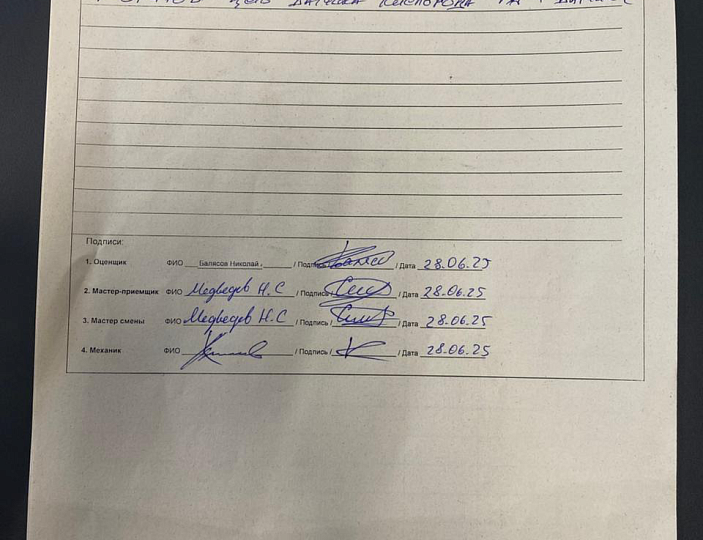 цепь датчика кислорода
Подписи:
1. Оценщик ФИО Балясов Николай / Подпись / Дата 28.06.25
2. Мастер-приемщик ФИО Медведев Н.С / Подпись / Дата 28.06.25
3. Мастер смены ФИО Медведев Н.С / Подпись / Дата 28.06.25
4. Механик ФИО / Подпись / Дата 28.06.25